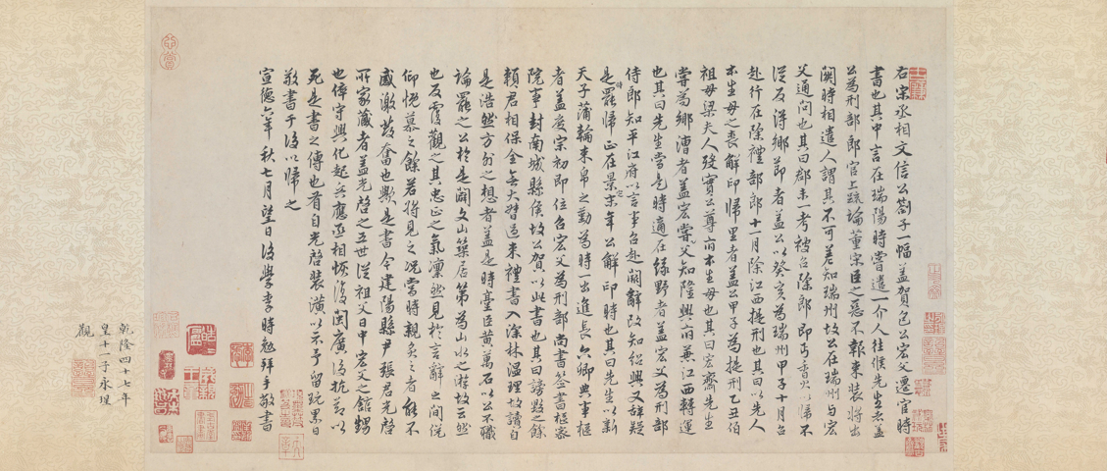 右宋丞相文信公劄子一幅蓋賀包公宏父遷官時
書也其中言在瑞陽時嘗遣一介人往候先生者蓋
公為刑部郎官上疏論董宋臣之惡不報束裝將出
闕時相遣人謂其不可差知瑞州故公在瑞州與宏
父通問也其曰郡未一考被召除郎即丐香火以歸不
從及得鄉節者蓋公以癸亥為瑞州甲子十月召
赴行在除禮部郎十一月除江西提刑也其曰以先人
本生母之喪解印歸里者蓋公甲子為提刑乙丑伯
祖母梁夫人歿實公尊府本生母也其曰宏齋先生
嘗為鄉漕者蓋宏父嘗知隆興府兼江西轉運
也其曰先生當是時適在綠野者蓋宏父為刑部
侍郎知平江府以言事召赴闕辭改知紹興又辭疑
是時罷歸正在景定末年公解印時也其曰先生以新
天子蒲輪束帛之勤為時一出進長六卿典事樞
者蓋度宗初即位召宏父為刑部尚書簽書樞密
院事封南城縣侯故公賀以此書也其曰謗毀之餘
賴君相保全無大督過來禮書入深林溫理故讀自
是浩然方外之想者蓋是時臺臣黃萬石以公不職
論罷之公於是闢文山築居第為山水之游故云然
也反覆觀之其忠正之氣凜然見於言辭之間使
仰慨慕之餘若將見之況當時親炙之者能不
感激發奮也歟是書今建陽縣尹張君光啓
所家藏者蓋光啓之五世從祖父日中宏父之館甥
也倅守興化起兵應丞相恢復閩廣後抗節以
死是書之傳也有自光啓裝潢以示予留玩累日
敬書于後以歸之
宣德六年秋七月望日後學李時勉拜手敬書
乾隆四十七年
皇十一子永瑆
觀